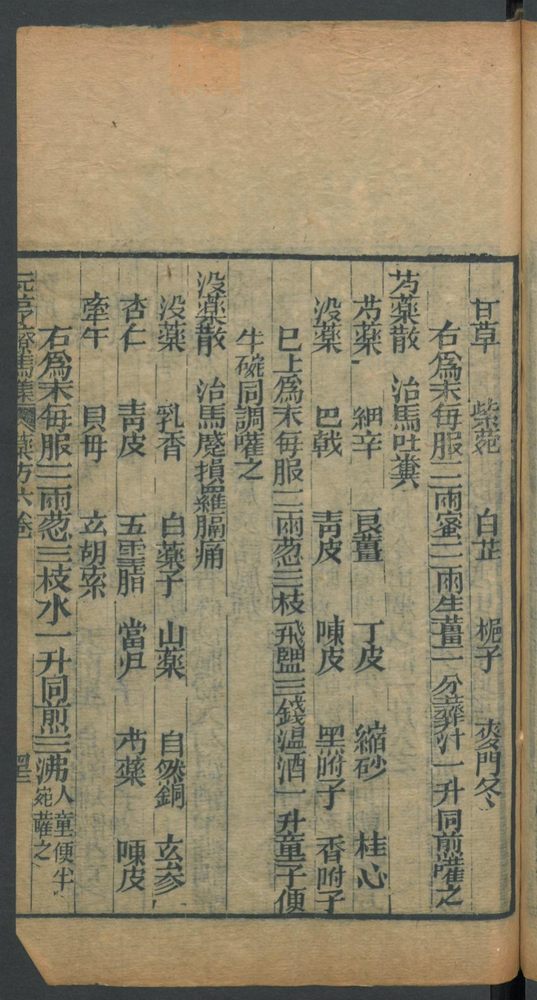 甘草 柴菀 白芷 梔子 麥門冬
右爲末每服二兩蜜二兩生薑一分韮汁一升同煎嚾之
芍藥散 治馬吐糞
芍藥 細辛 良薑 丁皮 縮砂 桂心
没藥 巴戟 靑皮 陳皮 黑附子 香附子
巳上爲末每服二兩葱三枝飛鹽三錢温酒一升童子便
半碗同調嚾之
没藥散 治馬蹙損羅膈痛
没藥 乳香 白藥子 山藥 自然銅 玄參
杏仁 靑皮 五靈脂 當歸 芍藥 陳皮
牽牛 貝母 玄胡索
右爲末每服二兩葱三枝水一升同煎三沸入童便半
碗嚾之
元亨療馬集 藥方六卷